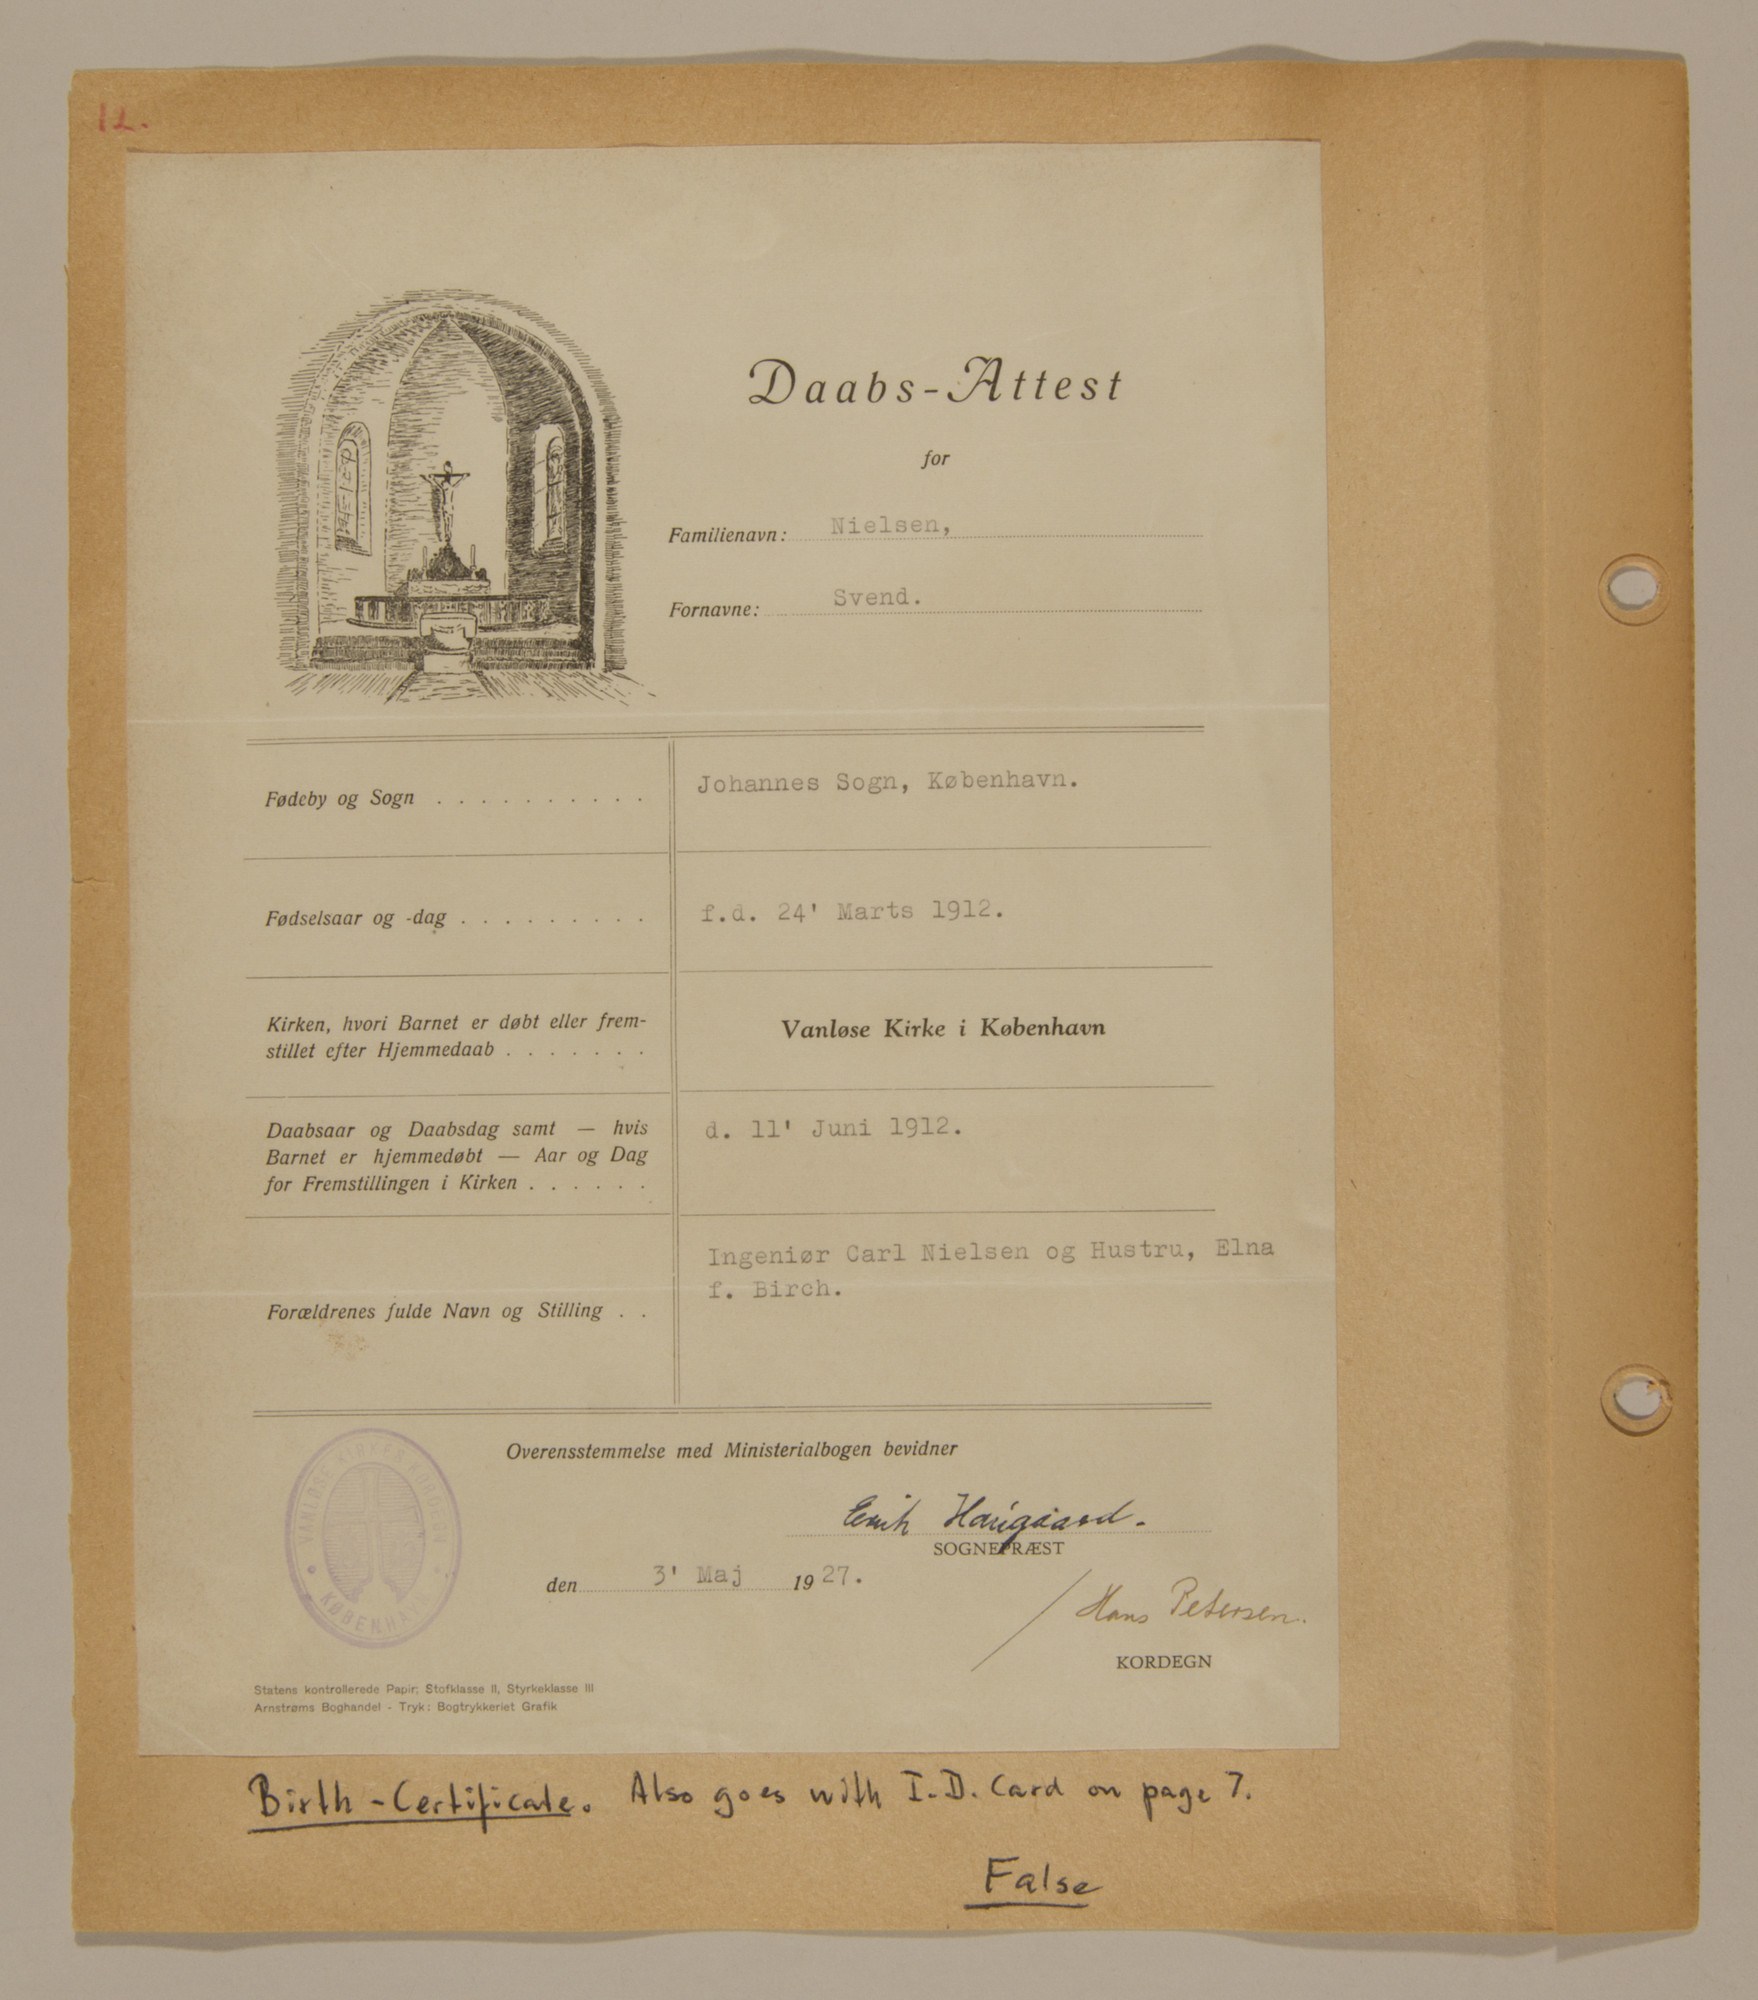 12.
Daabs-Attest
for
Familienavn: Nielsen,
Fornavne: Svend.
Fødeby og Sogn . . . . . . . . . . Johannes Sogn, København.
Fødselsaar og -dag . . . . . . . . . f.d. 24' Marts 1912.
Kirken, hvori Barnet er døbt eller frem-
stillet efter Hjemmedaab . . . . . . .
Vanløse Kirke i København
Daabsaar og Daabsdag samt — hvis
Barnet er hjemmedøbt — Aar og Dag
for Fremstillingen i Kirken . . . . . .
d. 11' Juni 1912.
Forældrenes fulde Navn og Stilling . .
Ingeniør Carl Nielsen og Hustru, Elna
f. Birch.
Overensstemmelse med Ministerialbogen bevidner
Erik Haugaard.
SOGNEPRÆST
den 3' Maj 1927.
Hans Petersen.
KORDEGN
VANLØSE KIRKES
KØBENHAVN
Statens kontrollerede Papir; Stofklasse II, Styrkeklasse III
Arnstrøms Boghandel - Tryk: Bogtrykkeriet Grafik
Birth-Certificate. Also goes with I.D. Card on page 7.
False